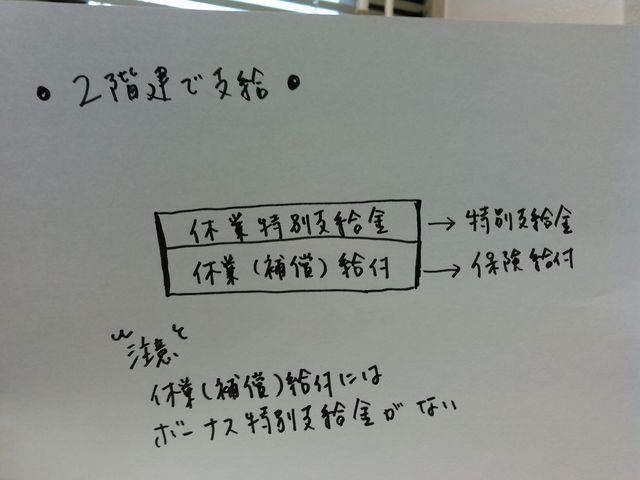 • 2階建で支給 •
休業特別支給金 → 特別支給金
休業(補償)給付 → 保険給付
"注意"
休業(補償)給付には
ボーナス特別支給金がない